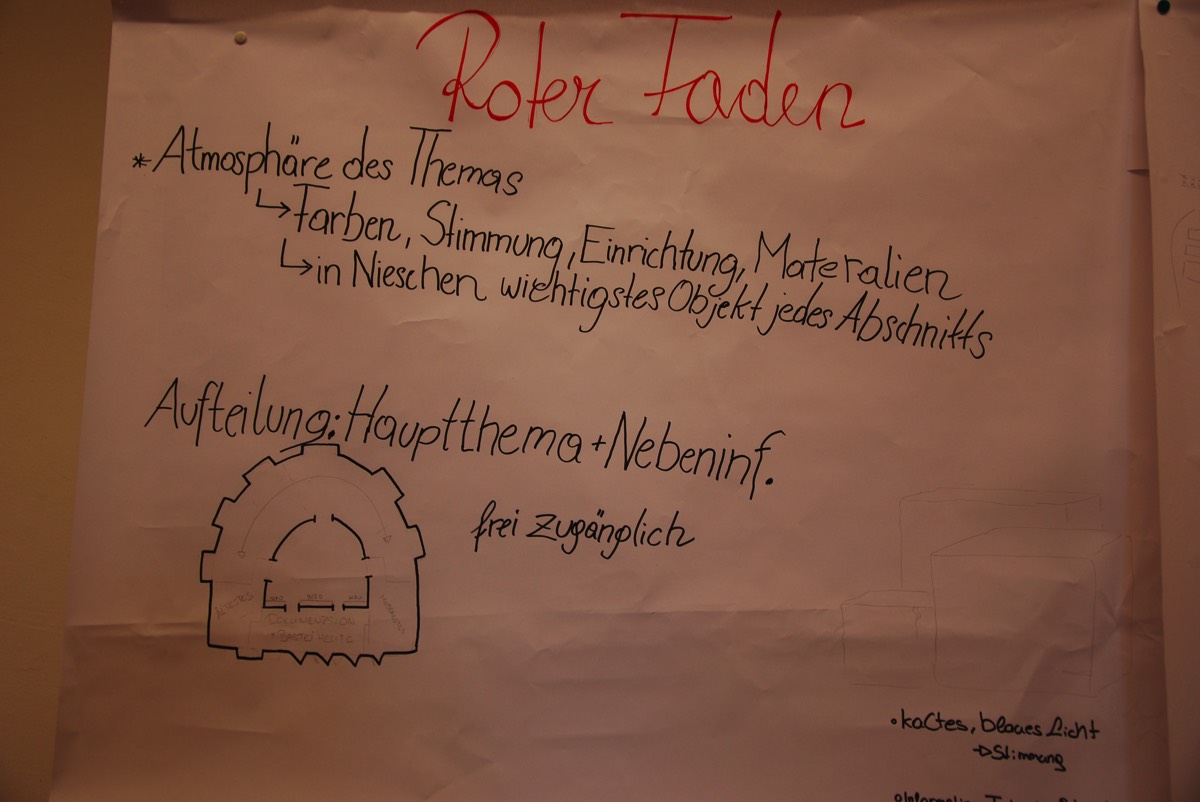 Roter Faden
* Atmosphäre des Themas
↳ Farben, Stimmung, Einrichtung, Materialien
↳ in Nieschen wichtigstes Objekt jedes Abschnitts
Aufteilung: Hauptthema + Nebeninf.
frei zugänglich
DOKUMENTATION
• kaltes, blaues Licht
→ Stimmung